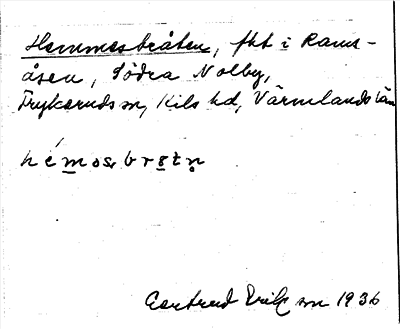 Hemmesbråten, fkt i Rams-
åsen, Södra Nolby,
Frykeruds sn, Kils hd, Värmlands län
hémosbrøtn
Gertrud Ericson 1936